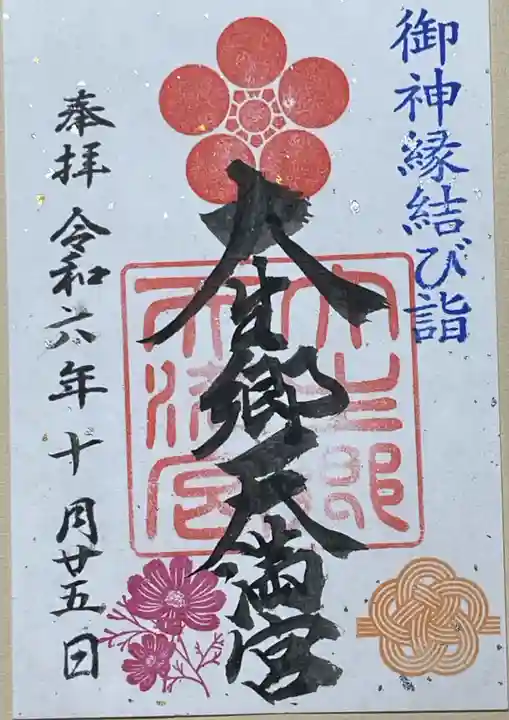 御神縁結び詣
大生郷天満宮
大生郷天満宮
奉拝 令和六年十月廿五日